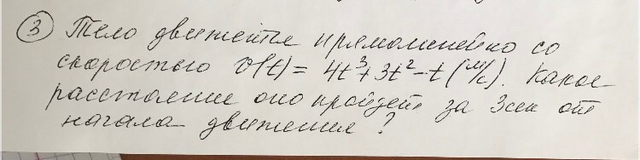 ③ Тело движется прямолинейно со
скоростью v(t) = 4t³+3t²-t (м/с). Какое
расстояние оно пройдет за 3 сек от
начала движения?